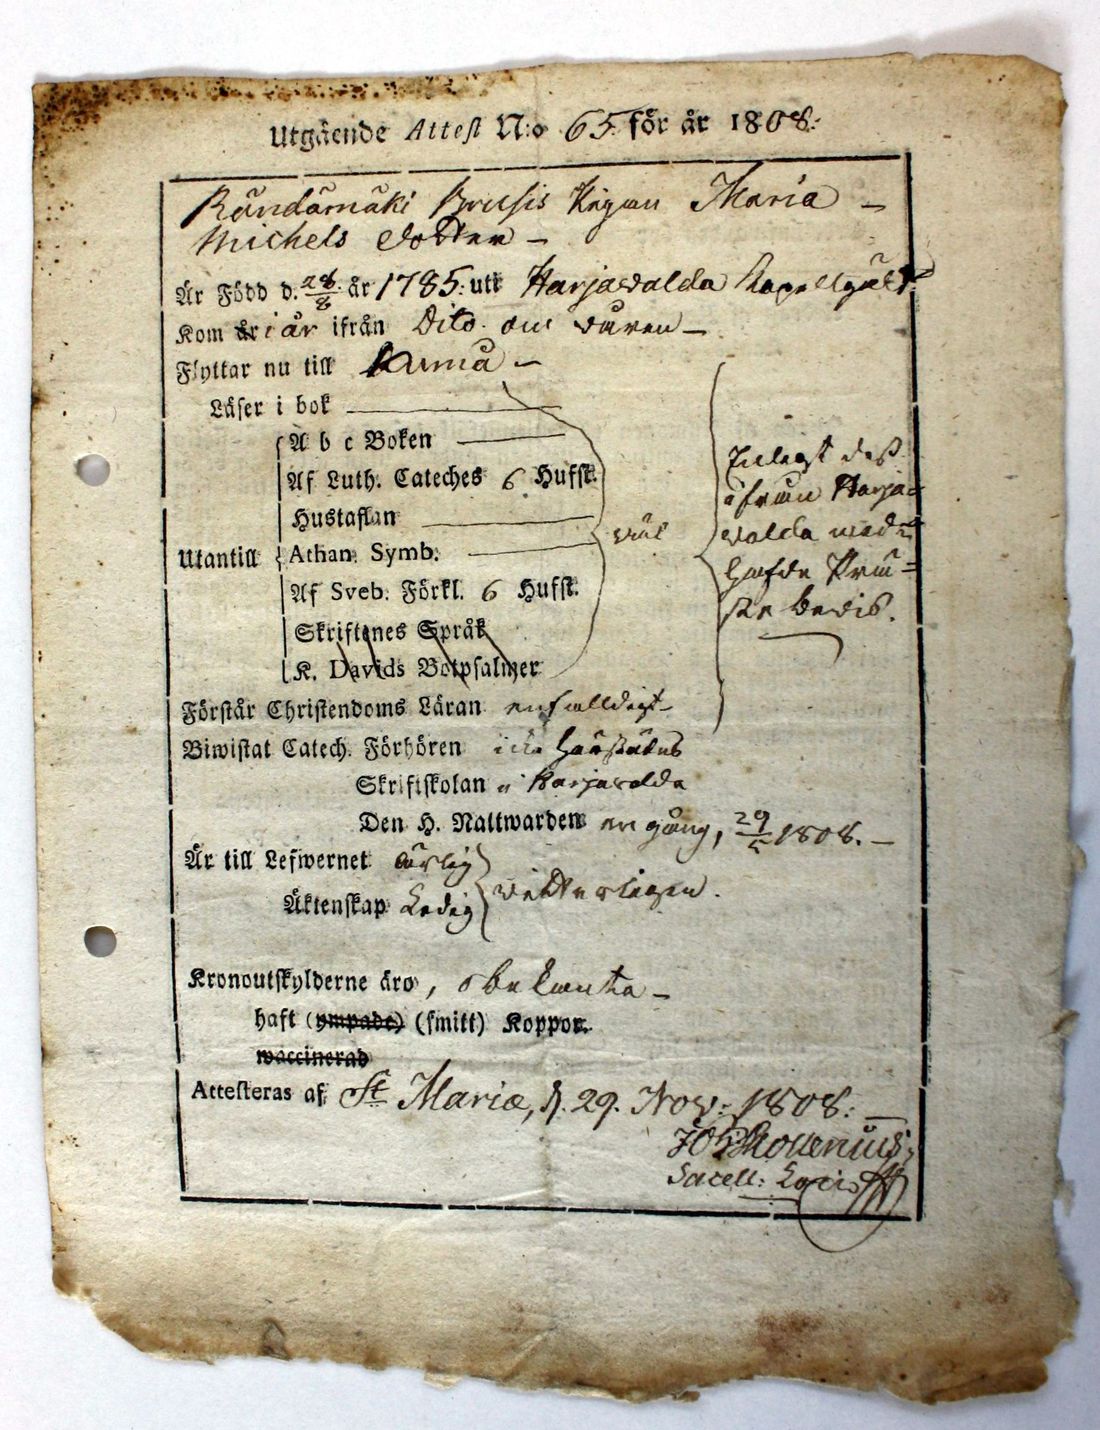 Utgående Attest N:o 65. för år 1808.
Rändämäki Prusis Pigan Maria –
Michels dotter –
Är Född d. 28/8 år 1785. uti Harjavalda Kapellgäld
Kom år i år ifrån Dito. om våren –
Flyttar nu till –
Läser i bok
A b c Boken
Af Luth. Cateches 6 Hufst.
Hustaflan
Utantill Athan. Symb. väl
Af Sveb. Förkl. 6 Hufst.
Skriftenes Språk
K. Davids Botpsalmer
Enligt dess
ifrån Harja=
valda med=
hafde Prä=
ste bevis.
Förstår Christendoms Läran enfalldigt
Biwistat Catech. Förhören icke härstädes
Skriftskolan i Harjavalda
Den H. Nattwarden en gång, 29/5 1808. –
Är till Lefwernet ärlig
Äktenskap Ledig vitterligen.
Kronoutskylderne äro, obekanta –
haft (ympade) (smitt) Koppor.
waccinerad
Attesteras af St Mariæ, d. 29. Nov: 1808: –
Sacell: Loci